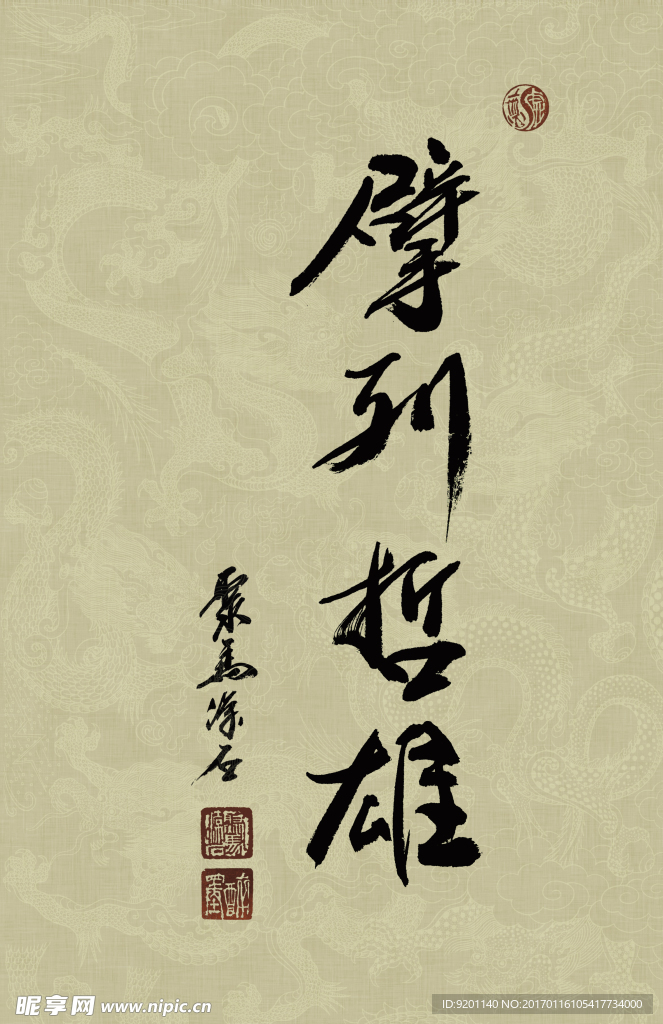 擘列哲雄
聚馬滌石
昵享网 www.nipic.cn
ID:9201140 NO:20170116105417734000